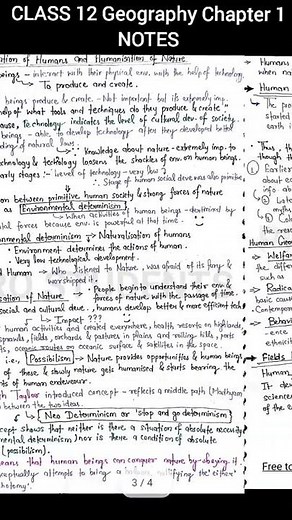 CLASS 12 Geography Chapter 1
NOTES
ation of Humans and Humanisation of Nature
beings - interact with their physical env. with the help of technology.
To produce and create.
beings produce & create - Not important but its extremely imp.
help of what tools and techniques do they produce & create"
cause, Technology indicates the level of cultural dev. of society.
beings - able to develop technology after they developed better
ding of natural laws.
Knowledge about nature - extremely imp. to
technology & technology loosens the shackles of env. on human beings.
early stages :- Level of technology - very low
Stage of human social dev. was also primitive
on between primitive human society & strong forces of nature
as Environmental determinism
When activities of human beings - determined by
forces because env. is powerful at that time.
nmental determinism → Naturalisation of humans
Environment determines the actions of human.
Very low technological development.
d Human → Who listened to Nature, was afraid of its fury &
worshipped it.
sation of Nature → People begin to understand their env. &
forces of nature with the passage of time.
social and cultural dev., humans develop better & more efficient tech
Impact ???
human activities are created everywhere, health resorts on highlands,
sprawls, fields, orchards & pastures in plains and rolling hills, ports
ts, oceanic routes on oceanic surface & satellites in the space.
i.e., Possibilism → Nature provides opportunities & human beings
of these & slowly nature gets humanised & starts bearing the
ts of human endeavour.
th Taylor introduced concept - reflects a middle path (Madhyam
between the two ideas.
Neo Determinism or 'stop and go determinism'
cept shows that neither is there a situation of absolute necessity
mental determinism) nor is there a condition of absolute
(possibilism).
means that human beings can conquer nature by obeying it.
graphically attempts to bring a balance nullifying the 'either'
hotomy'.
3 / 4
Humans
when na
Human
The po
started
earth i
Thus,
though th
Earlier
about
info ab
Human Geo
Welfar
the diffe
such as
Radica
basic cau
Contempor
Behavi
ence
ethnicity
Fields
Human
It de
sciences
of the e
Free to